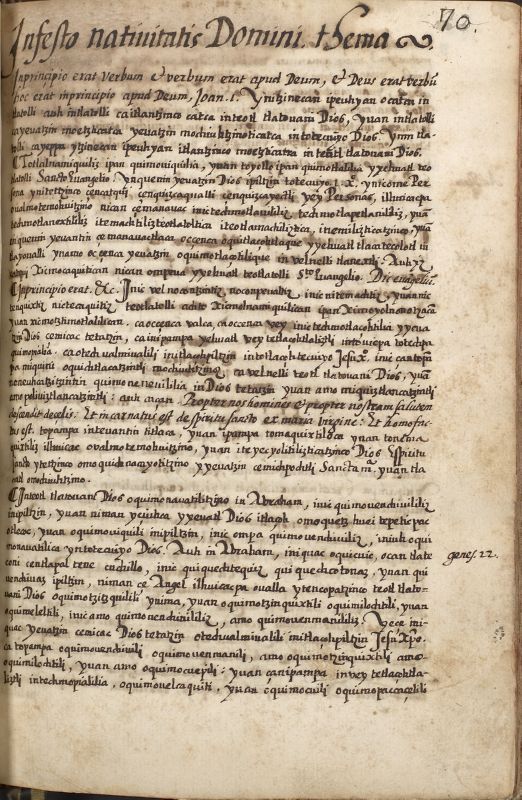 70.
In festo nativitatis Domini. thema
Inprincipio erat Verbum & verbum erat apud Deum, & Deus erat verbũ
hoc erat inprincipio apud Deum, Joan. 1. Ynitzinecan ipeuhyan ocatca in
tlatolli auh intlatolli catlantzinco catca inteotl tlatouani Dios, yuan intlatolli
ca yeuatzin moetzticatca yeuatzin mochiuhtzinoticatca intotecuiyo Dios. Ynin tla-
tolli ca yeppa ytzinecan ipeuhyan itlantzinco moetzticatca in teotl tlatouani Dios.
Totlalnamiquiliz ipan quimouiquilia, yuan toyollo ipan quimotlalilia yyehuatl teo
tlatolli Sancto Euangelio. Dios ipiltzin totecuiyo. J. xo. ynicome Per
sona cenquizcaqualli cenquizcayectli yey Personas, ilhuicacpa
oualmotemohuitzino nican cemanauac inic techmotlaouililiz, techmotlapetlanililiz, yuã
techmotlanextililiz itemachtiliztlatoltica iteotlamachiliztica, inemiliztlicatzinco, yuã
inquenin yeuantin cemanauactlaca occenca yyehuatl tlacatecolotl in
tlayoualli ynauac occenca yeuatzin in velnelli tlanextli. Auh yz
Ximocaquitican nican ompeua yyehuatl teotlatolli Sto Euangelio. Dic euangeliũ.
Inprincipio erat. &c. Inic vel noconitzintiz noconpeualtiz, inic nitemachtiz, yuan nic
teotlatolli achto ximotlalnamiquilican ipan
yuan ca occenca valca ca occenca vey inic techmotlaçohtilia yyeua
tzin Dios cemicac tetatzin, ca in ipampa yehuatl vey tetlaçotlaliztli intouicpa totechpa
quimopialia, ca otechualmiualili initlaçohpiltzin intotlaçohtecuiyo Jesu xo.
pa miquiz oquichtlacatzintli mochiuhtzinoz ca velnelli teotl tlatouani Dios, yuã
quimoneneuililia in Dios tetatzin yuan amo miquiztlancatzintli
amo : auh axcan. Propter nos homines & propter nostram salutem
descendit de celis: Et incarnatus est de spiritu sancto ex maria Virgine: Et homo fac-
tus est. topampa inteuantin titlaca, yuan ipampa tomaquixtiloca yuan tonema
quixtiliz ilhuicac oualmotemohuitzino, yuan Espiritu
Sancto ytetzinco omoquichnacayotitzino yyeuatzin cemicichpochtli Sancta ma. yuan tla
catl omochiuhtzino.
Inteotl tlatouani Dios oquimonauatilitzino in Abraham, inic quimouenchiuililiz
inipiltzin, yuan niman yeiuhca yyeuatl Dios itlaçoh omoquetz huei tepeticpac
otlecoc, yuan oquimouiquili inipiltzin, inic ompa quimouenchiuiliz, iniuh oqui
monauatilica yntotecuiyo Dios. Auh in Abraham, iniquac oquicuic, ocan tlate
coni centlapal tene cuchillo, inic quiquechtequiz quiquechcotonaz, yuan qui
uenchiuaz ipiltzin, niman ce Angel ilhuicacpa oualla- ytencopatzinco teotl tlato-
uani Dios oquimotzitzquilili ynima, yuan oquimotzinquixtili oquimilochtili, yuan
oquimelelhti, inic amo quimouenchiuililiz, amo quimouenmaniliz. Yece ini-
quac yeuatzin cemicac Dios tetatzin otechualmiualili initlaçohpiltzin Jesu Xpo.
ca topampa oquimouenchiuili oquimouenmanili, amo oquimotzinquixtili amo
oquimilochtili, yuan amo oquimocuepili: yuan canipampa in vey tetlaçohtla-
liztli intechmopialilia, oquimouelcaquiti, yuan oquimocuili oquimopaccacelili
genes. 22.